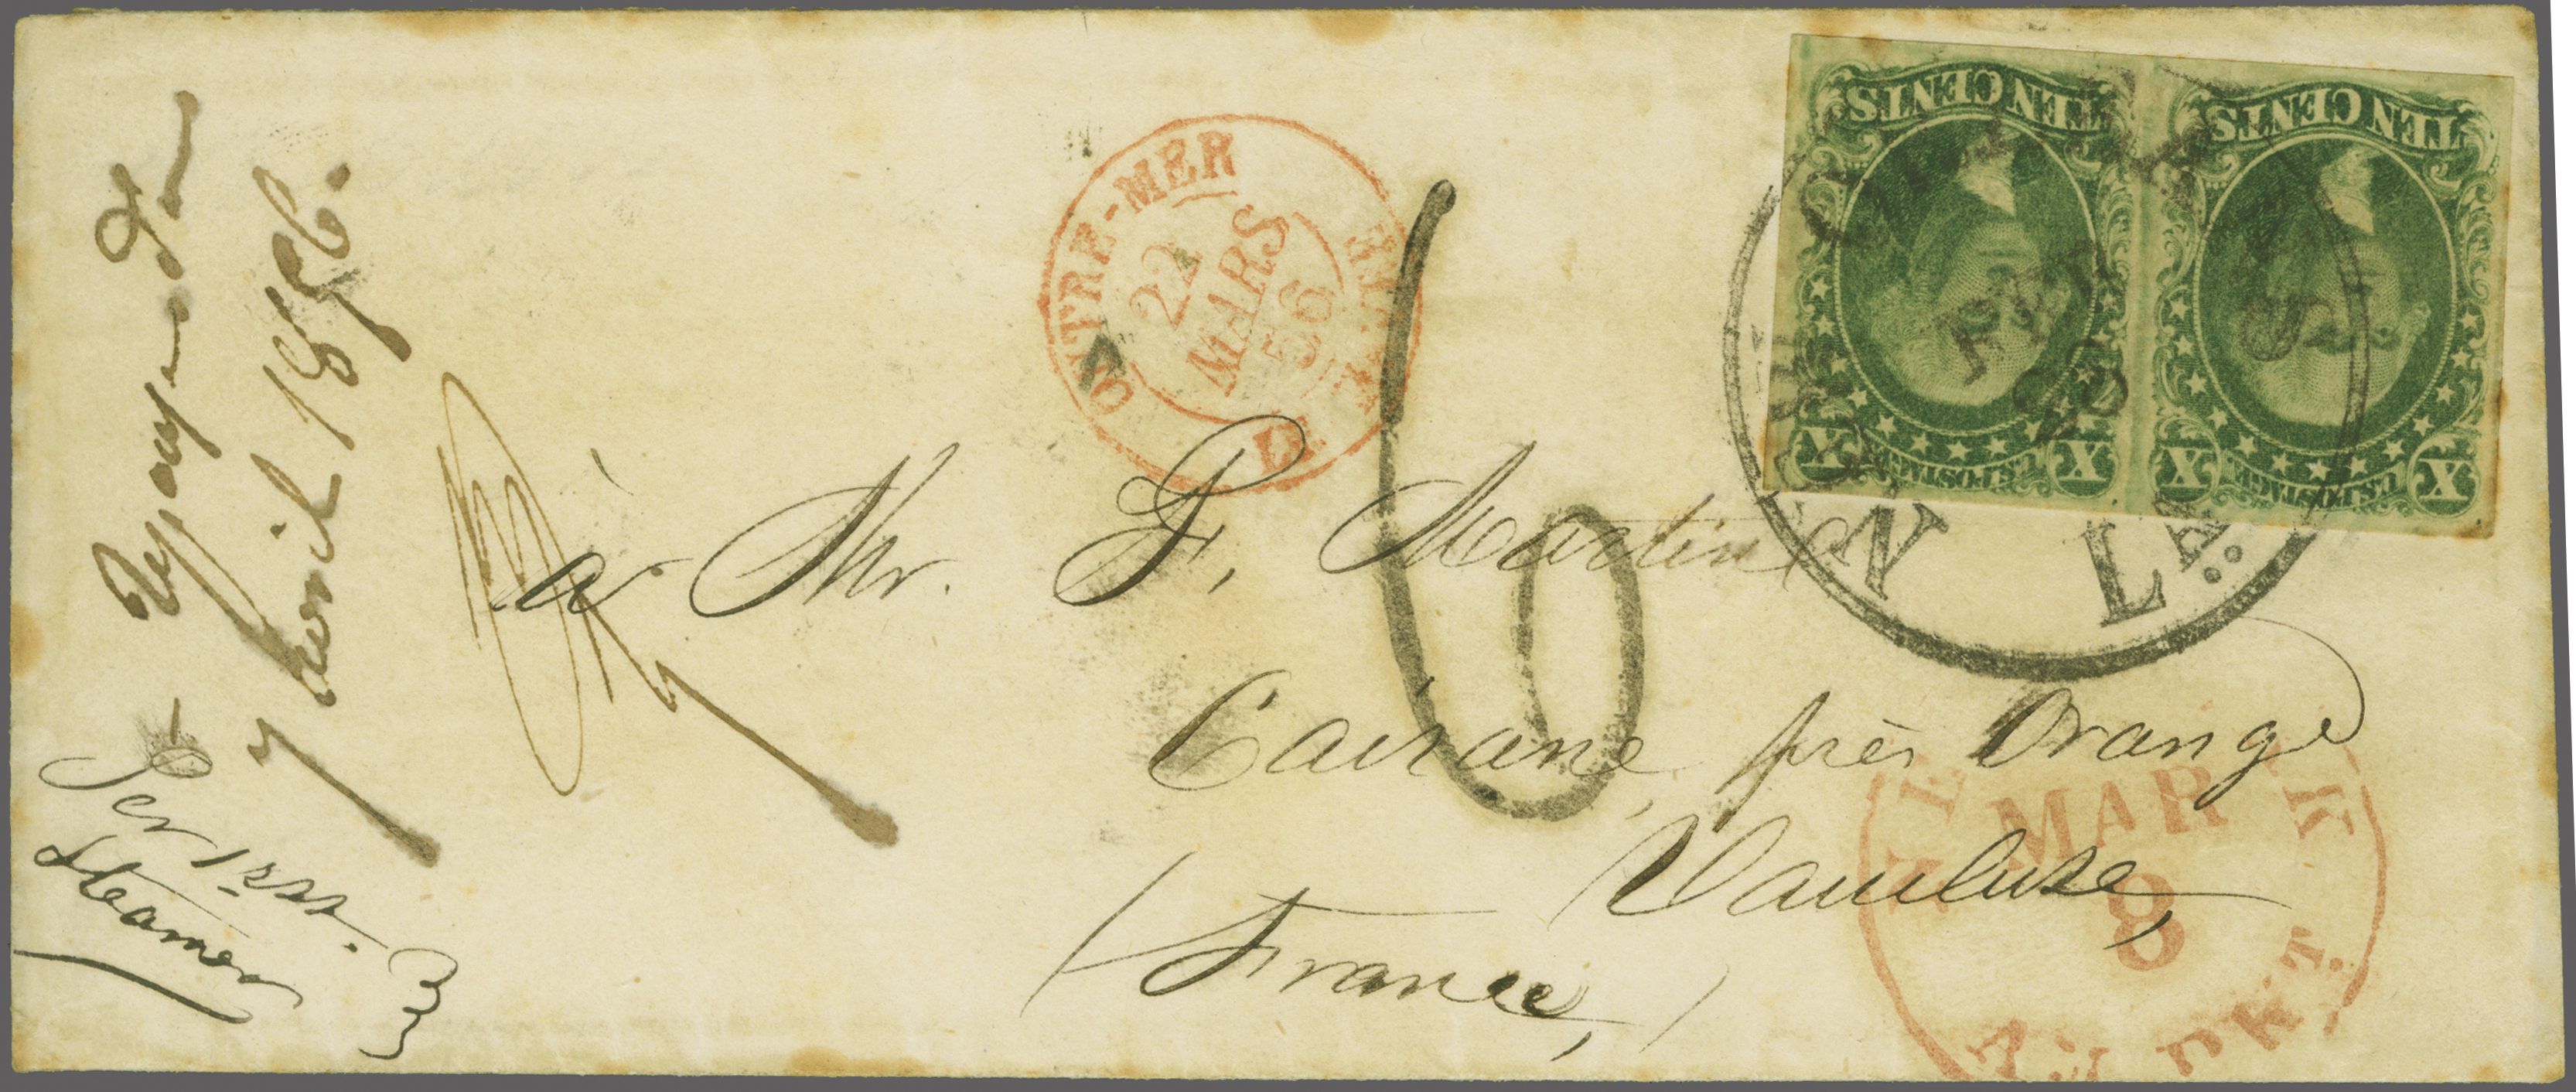 à Mr. F. Martin
Cairane, près Orange
Vaucluse,
(France,)
Per 1st
Steamer
7 avril 1856.
OUTRE-MER
LE
22
MARS
56
TEN CENTS
TEN CENTS
U.S. POSTAGE
U.S. POSTAGE
X X
X X
FEB
28
N LA.
NEW
YORK
MAR
8
PKT.
6